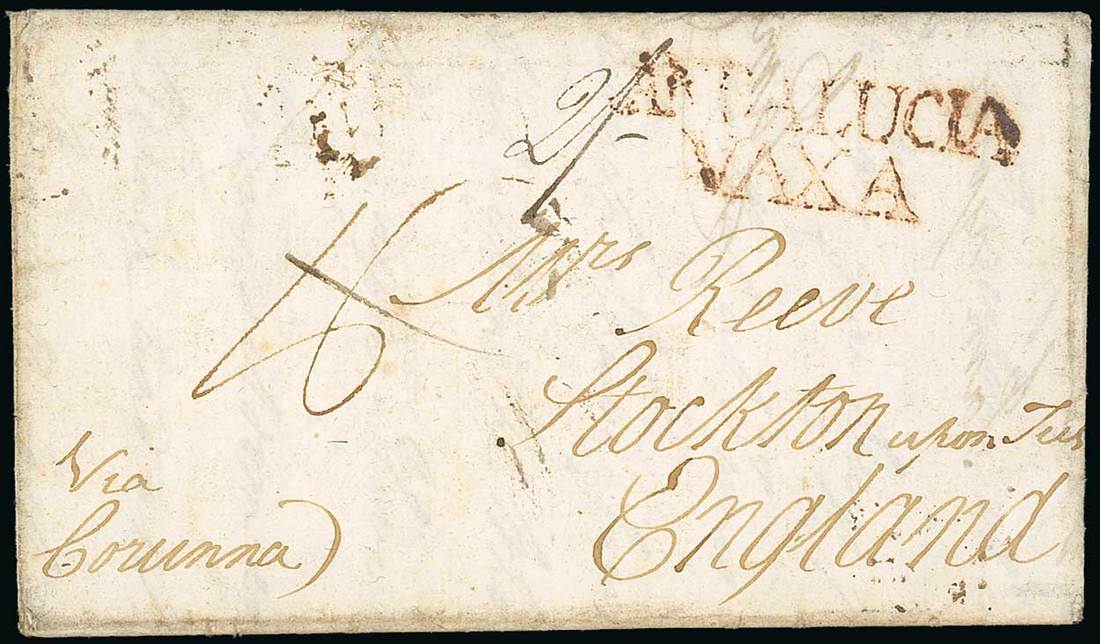 ANDALUCIA
VAXA
2/-
Mrs Reeve
Stockton upon Tees
England
Via
Corunna